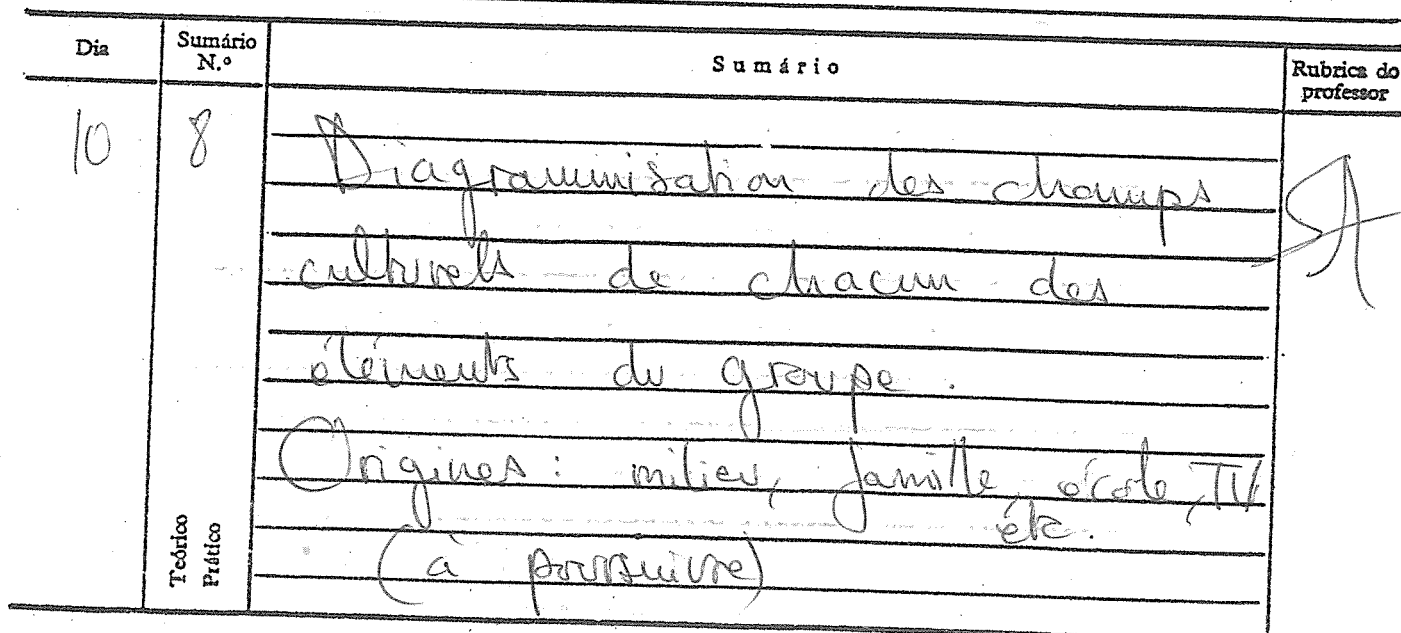 Dia
Sumário N.º
Sumário
Rubrica do professor
10
8
Diagrammisation des champs
culturels de chacun des
éléments du groupe.
Origines: milieu, famille, école, TV
etc.
(à poursuivre)
Teórico
Prático